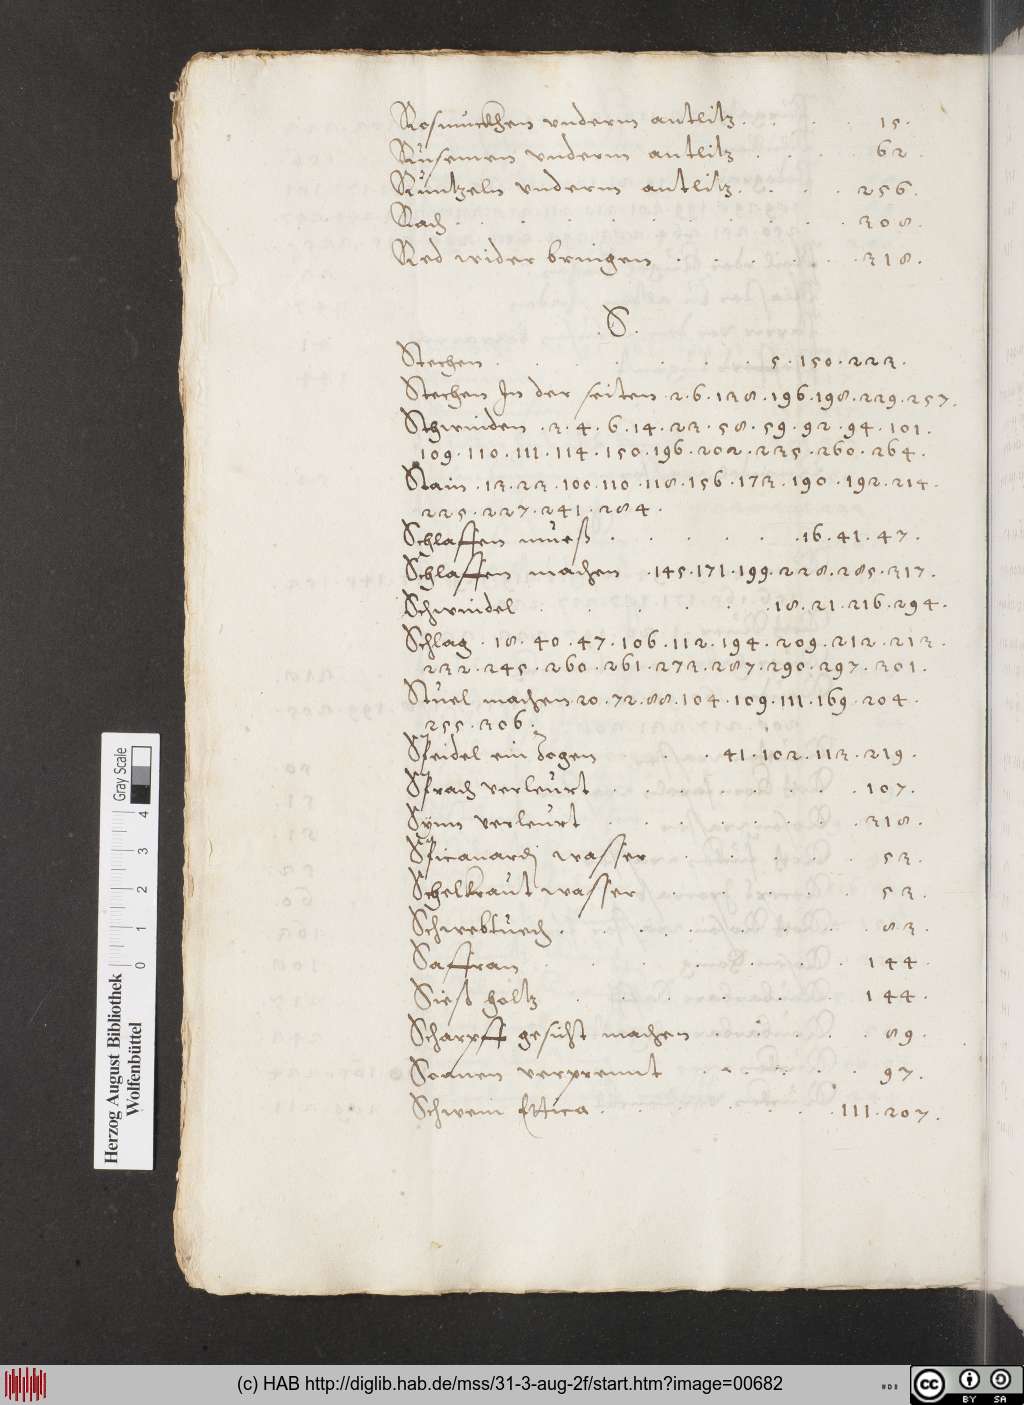 Rosmuckhen vnderm antlitz . . . . 15.
Rüsemen vnderm antlitz . . . . 62.
Rüntzeln vnderm antlitz . . . . 256.
Rach . . . . . . . . 308.
Red wider bringen . . . . . 318.
.S.
Stechen . . . . . . . 5.150.223.
Stechen In der seiten.2.6.138.196.198.229.257.
Schwinden .3.4.6.14.23.58.59.92.94.101.
109.110.111.114.150.196.202.235.260.264.
Stain .13.23.100.110.118.156.173.190.192.214.
225.227.241.284.
Schlaffen mueß . . . . . .16.41.47.
Schlaffen machen .145.171.199.228.285.317.
Schwindel . . . . . . 18.21.216.294.
Schlag .18.40.47.106.112.194.209.212.213.
232.245.260.261.273.287.290.297.301.
Stuel machen 20.72.88.104.109.111.169.204.
255.306.
Speidel ein Zogen . . . 41.102.113.219.
Sprach verleurt . . . . . . 107.
Synn verleurt . . . . . . . 318.
Spicanardj wasser . . . . . 53.
Schelkraut wasser . . . . . 53.
Schwebtuech . . . . . . . 83.
Saffran . . . . . . . 144.
Siesß holtz . . . . . . 144.
Scharpff gesicht machen . . . . 89.
Sonnen verprennt . . . . . 97.
Schwein Ettica . . . . . . 111.207.
Gray Scale
0 1 2 3 4
Herzog August Bibliothek
Wolfenbüttel
(c) HAB http://diglib.hab.de/mss/31-3-aug-2f/start.htm?image=00682
cc BY SA